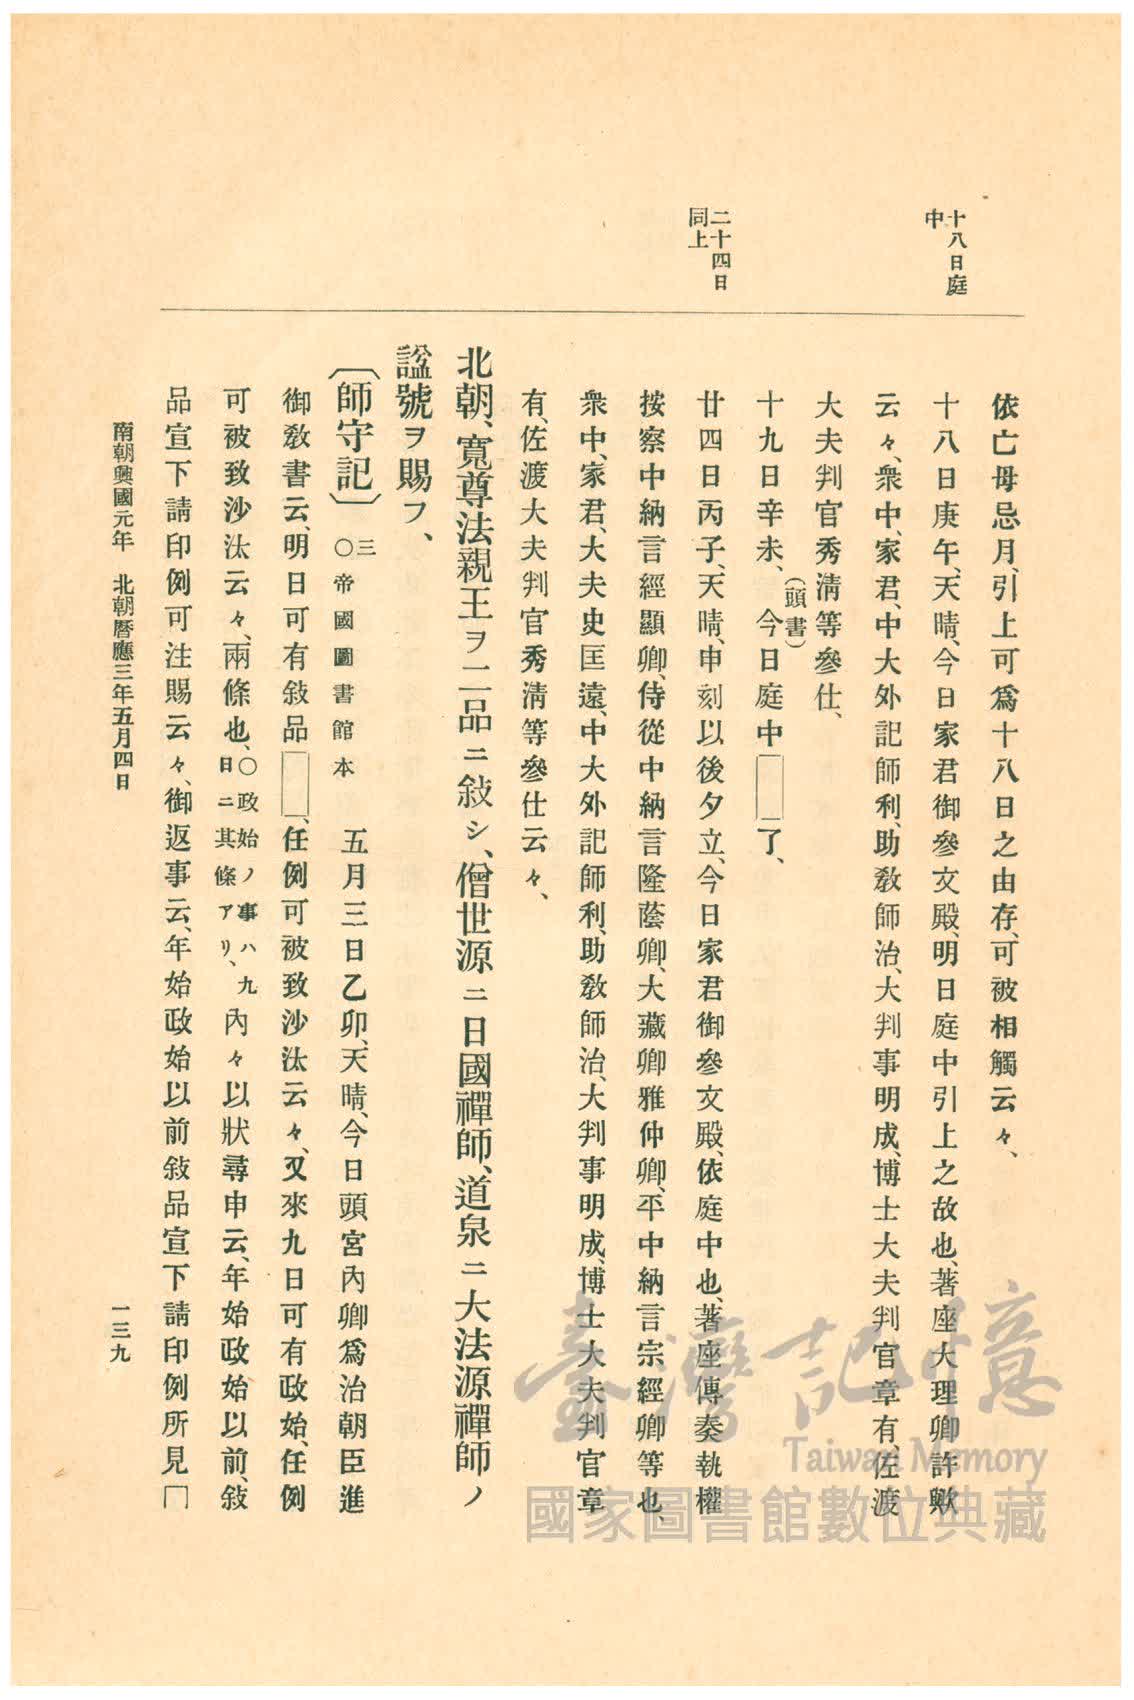 十八日庭
中
二十四日
同上
依亡母忌月、引上可爲十八日之由存、可被相觸云々、
十八日庚午、天晴、今日家君御參文殿、明日庭中引上之故也、著座大理卿許歟
云々、衆中、家君、中大外記師利、助教師治、大判事明成、博士大夫判官章有、佐渡
大夫判官秀清等參仕、
(頭書)
十九日辛未、今日庭中□了、
廿四日丙子、天晴、申刻以後夕立、今日家君御參文殿、依庭中也、著座傳奏執權
按察中納言經顯卿、侍從中納言隆蔭卿、大藏卿雅仲卿、平中納言宗經卿等也、
衆中、家君、大夫史匡遠、中大外記師利、助教師治、大判事明成、博士大夫判官章
有、佐渡大夫判官秀清等參仕云々、
北朝、寬尊法親王ヲ二品ニ敍シ、僧世源ニ日國禪師、道泉ニ大法源禪師ノ
諡號ヲ賜フ、
〔師守記〕三○帝國圖書館本 五月三日乙卯、天晴、今日頭宮內卿爲治朝臣進
御敎書云、明日可有敍品□、任例可被致沙汰云々、又來九日可有政始、任例
可被致沙汰云々、兩條也、○政始ノ事ハ九日ニ其條アリ、內々以狀尋申云、年始政始以前、敍
品宣下請印例可注賜云々、御返事云、年始政始以前敍品宣下請印例所見□
南朝興國元年 北朝曆應三年五月四日
一三九
臺灣記憶
Taiwan Memory
國家圖書館數位典藏